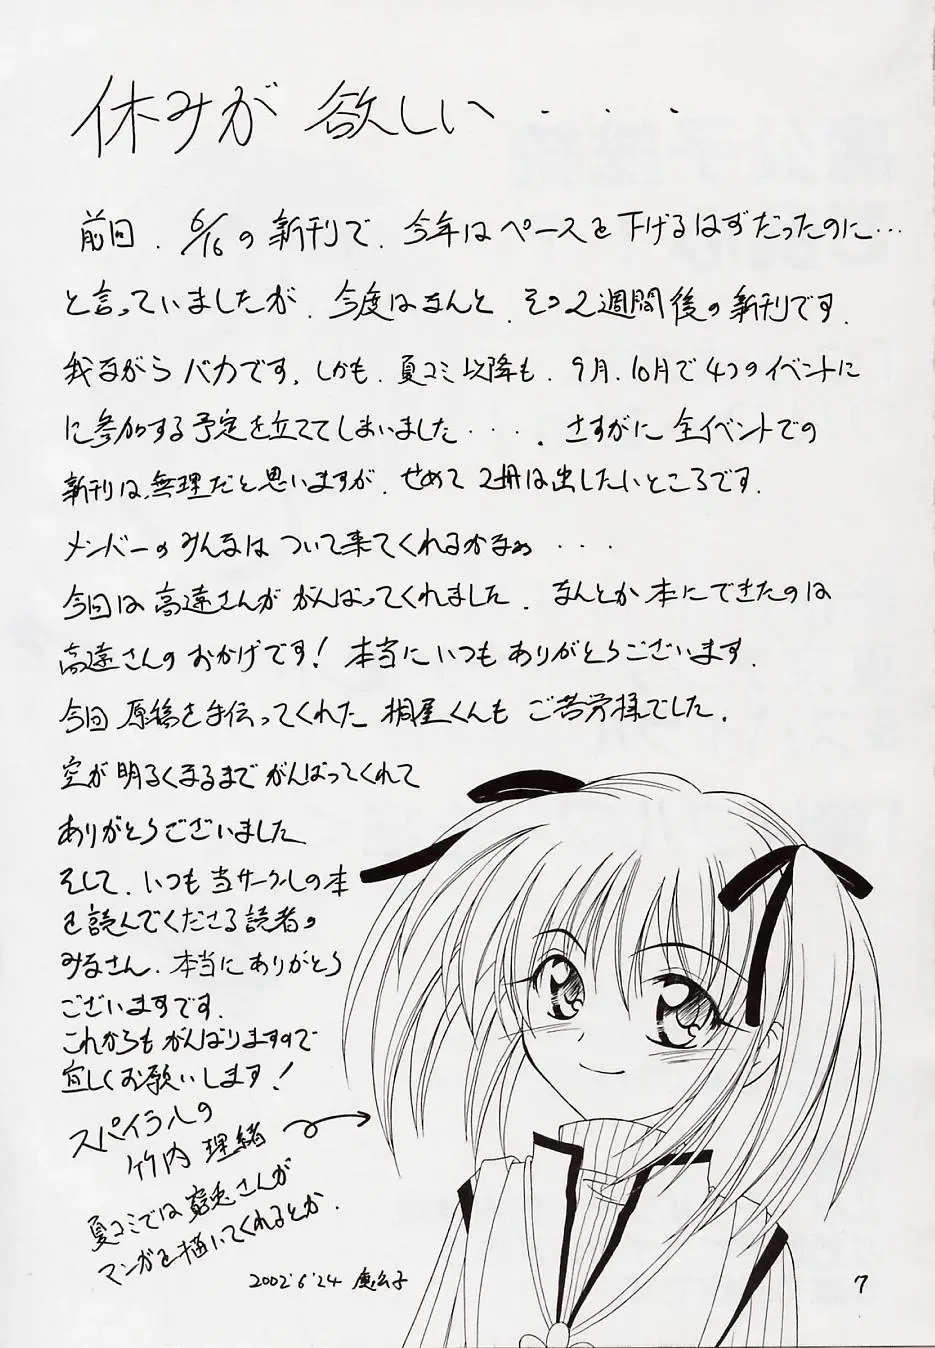 休みが欲しい・・・
前回、6/16の新刊で、今年はペースを下げるはずだったのに…
と言っていましたが、今度はなんと、その2週間後の新刊です。
我ながらバカです。しかも、夏コミ以降も、9月、10月で4つのイベントに
に参加する予定を立ててしまいました・・・。さすがに全イベントでの
新刊は、無理だと思いますが、せめて2冊は出したいところです。
メンバーのみんなはついて来てくれるかなぁ・・・
今回は高遠さんががんばってくれました。なんとか本にできたのは
高遠さんのおかげです!本当にいつもありがとうございます。
今回原稿を手伝ってくれた桐屋くんもご苦労様でした。
空が明るくなるまでがんばってくれて
ありがとうございました
そして、いつも当サークルの本
を読んでくださる読者の
みなさん、本当にありがとう
ございますです。
これからもがんばりますので
宜しくお願いします!
スパイラルの
竹内理緒
夏コミでは 兎さんが
マンガを描いてくれるとか。
2002.6.24 恵公子
7